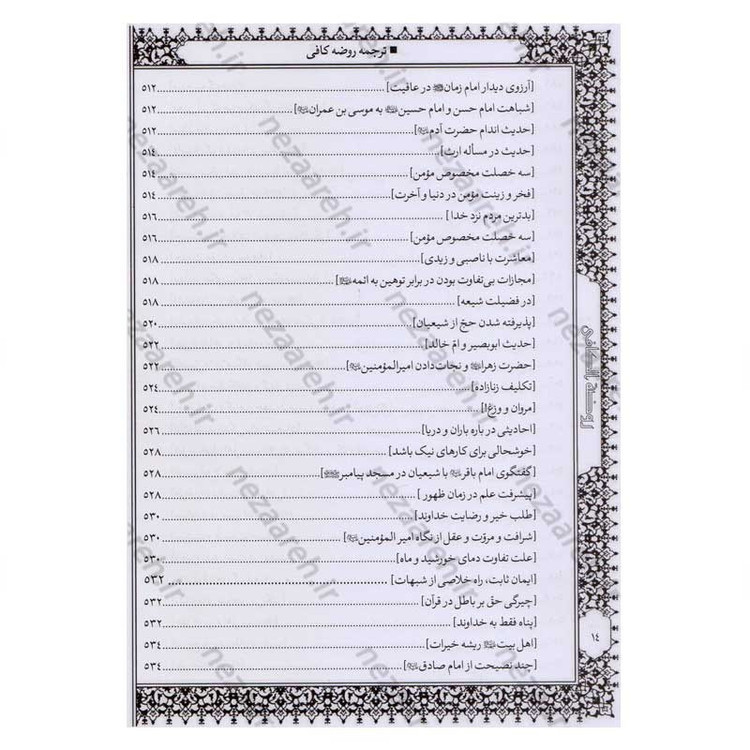 ■ ترجمه روضه کافی
[آرزوی دیدار امام زمان در عاقبت] ۵۱۲
[شباهت امام حسن و امام حسین به موسی بن عمران] ۵۱۲
[حدیث اندام حضرت آدم] ۵۱۲
[حدیث در مسأله ارث] ۵۱۴
[سه خصلت مخصوص مؤمن] ۵۱۴
[فخر و زینت مؤمن در دنیا و آخرت] ۵۱۴
[بدترین مردم نزد خدا] ۵۱۶
[سه خصلت مخصوص مؤمن] ۵۱۶
[معاشرت با ناصبی و زیدی] ۵۱۸
[مجازات بی‌تفاوت بودن در برابر توهین به ائمه] ۵۱۸
[در فضیلت شیعه] ۵۱۸
[پذیرفته شدن حجّ از شیعیان] ۵۲۰
[حدیث ابوبصیر و امّ خالد] ۵۲۲
[حضرت زهرا و نجات‌دادن امیرالمؤمنین] ۵۲۲
[تکلیف زنازاده] ۵۲۴
[مروان و وزغ!] ۵۲۴
[احادیثی در باره باران و دریا] ۵۲۶
[خوشحالی برای کارهای نیک باشد] ۵۲۸
[گفتگوی امام باقر با شیعیان در مسجد پیامبر] ۵۲۸
[پیشرفت علم در زمان ظهور] ۵۲۸
[طلب خیر و رضایت خداوند] ۵۳۰
[شرافت و مروّت و عقل از نگاه امیر المؤمنین] ۵۳۰
[علت تفاوت دمای خورشید و ماه] ۵۳۰
[ایمان ثابت، راه خلاصی از شبهات] ۵۳۲
[چیرگی حقّ بر باطل در قرآن] ۵۳۲
[پناه فقط به خداوند] ۵۳۲
[اهل بیت ریشه خیرات] ۵۳۴
[چند نصیحت از امام صادق] ۵۳۴
روضة الکافی
۱۴
nezaareh.ir